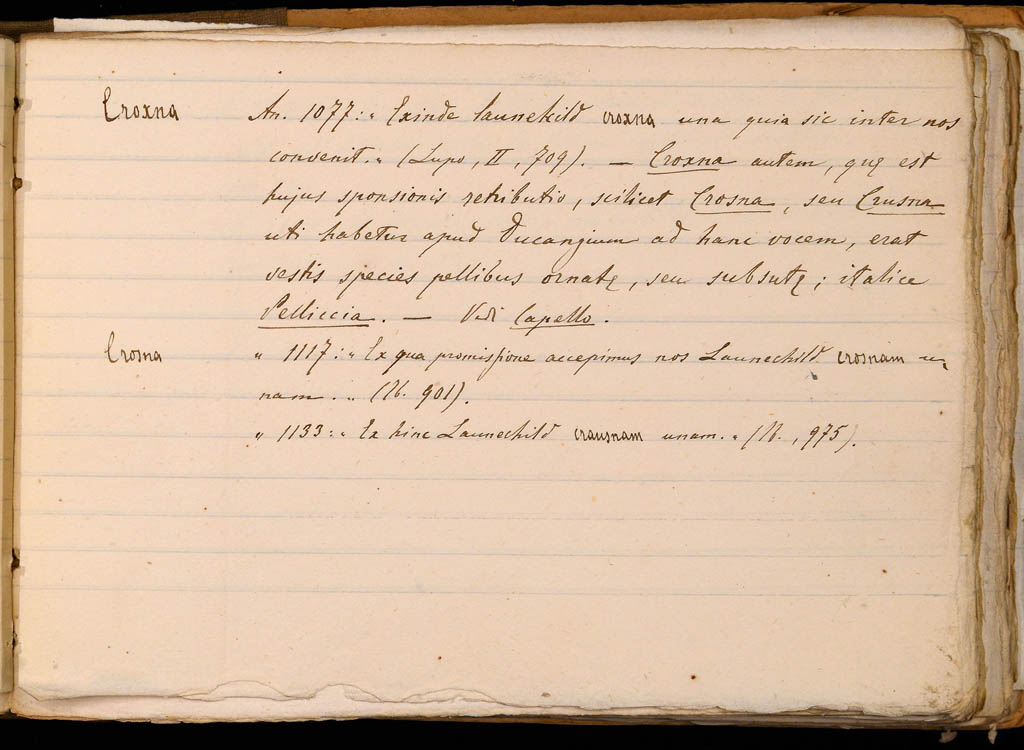 Croxna An. 1077: „ Exinde launehild croxna una quia sic inter nos
convenit. „ (Lupo, II, 709). — Croxna autem, quę est
hujus sponsionis retributio, scilicet Crosna, seu Crusna
uti habetur apud Ducangium ad hanc vocem, erat
vestis species pellibus ornatę, seu subsutę; italice
Pelliccia. — Vedi Capello.
Crosna „ 1117: „ Ex qua promissione accepimus nos Launechild crosnam u-
nam. „ (Ib. 901).
„ 1133: „ Ex hinc Launechild crausnam unam. „ (Ib., 975).